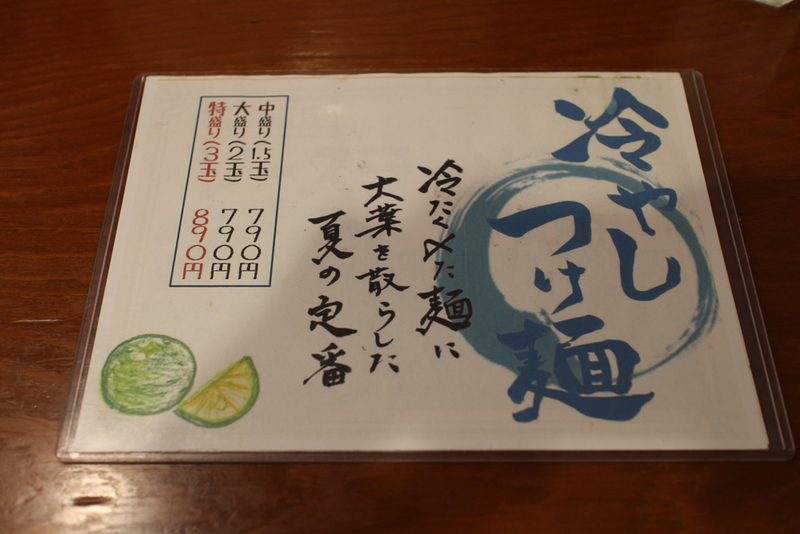 冷やし
つけ麺
冷たく〆た麺に
大葉を散らした
夏の定番
中盛り(1.5玉) 790円
大盛り(2玉) 790円
特盛り(3玉) 890円